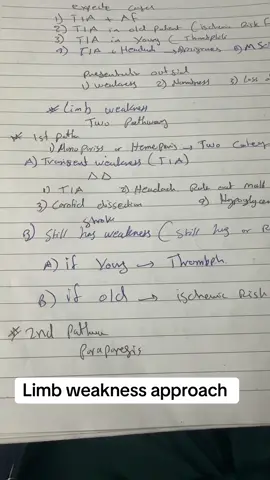 expecte cases
1) TIA + AF
2) TIA in old patient (ischemic Risk F
3) TIA in Young (Thromboph
4) TIA + Headach
Presentation outsid
1) weakness 2) Numbness 3) Loss
* Limb weakness
Two Pathway
* 1st path
1) Monoparisis or Hemeparisis → Two Categor
A) Transient weakness (TIA)
ΔΔ
1) TIA 2) Headach Rule out
3) Carotid dissection 4) Hypoglycem
stroke
B) Still has weakness (Still
A) if Young → Thromboph.
B) if old → ischemic Risk
* 2nd Pathwa
paraparesis
Limb weakness approach